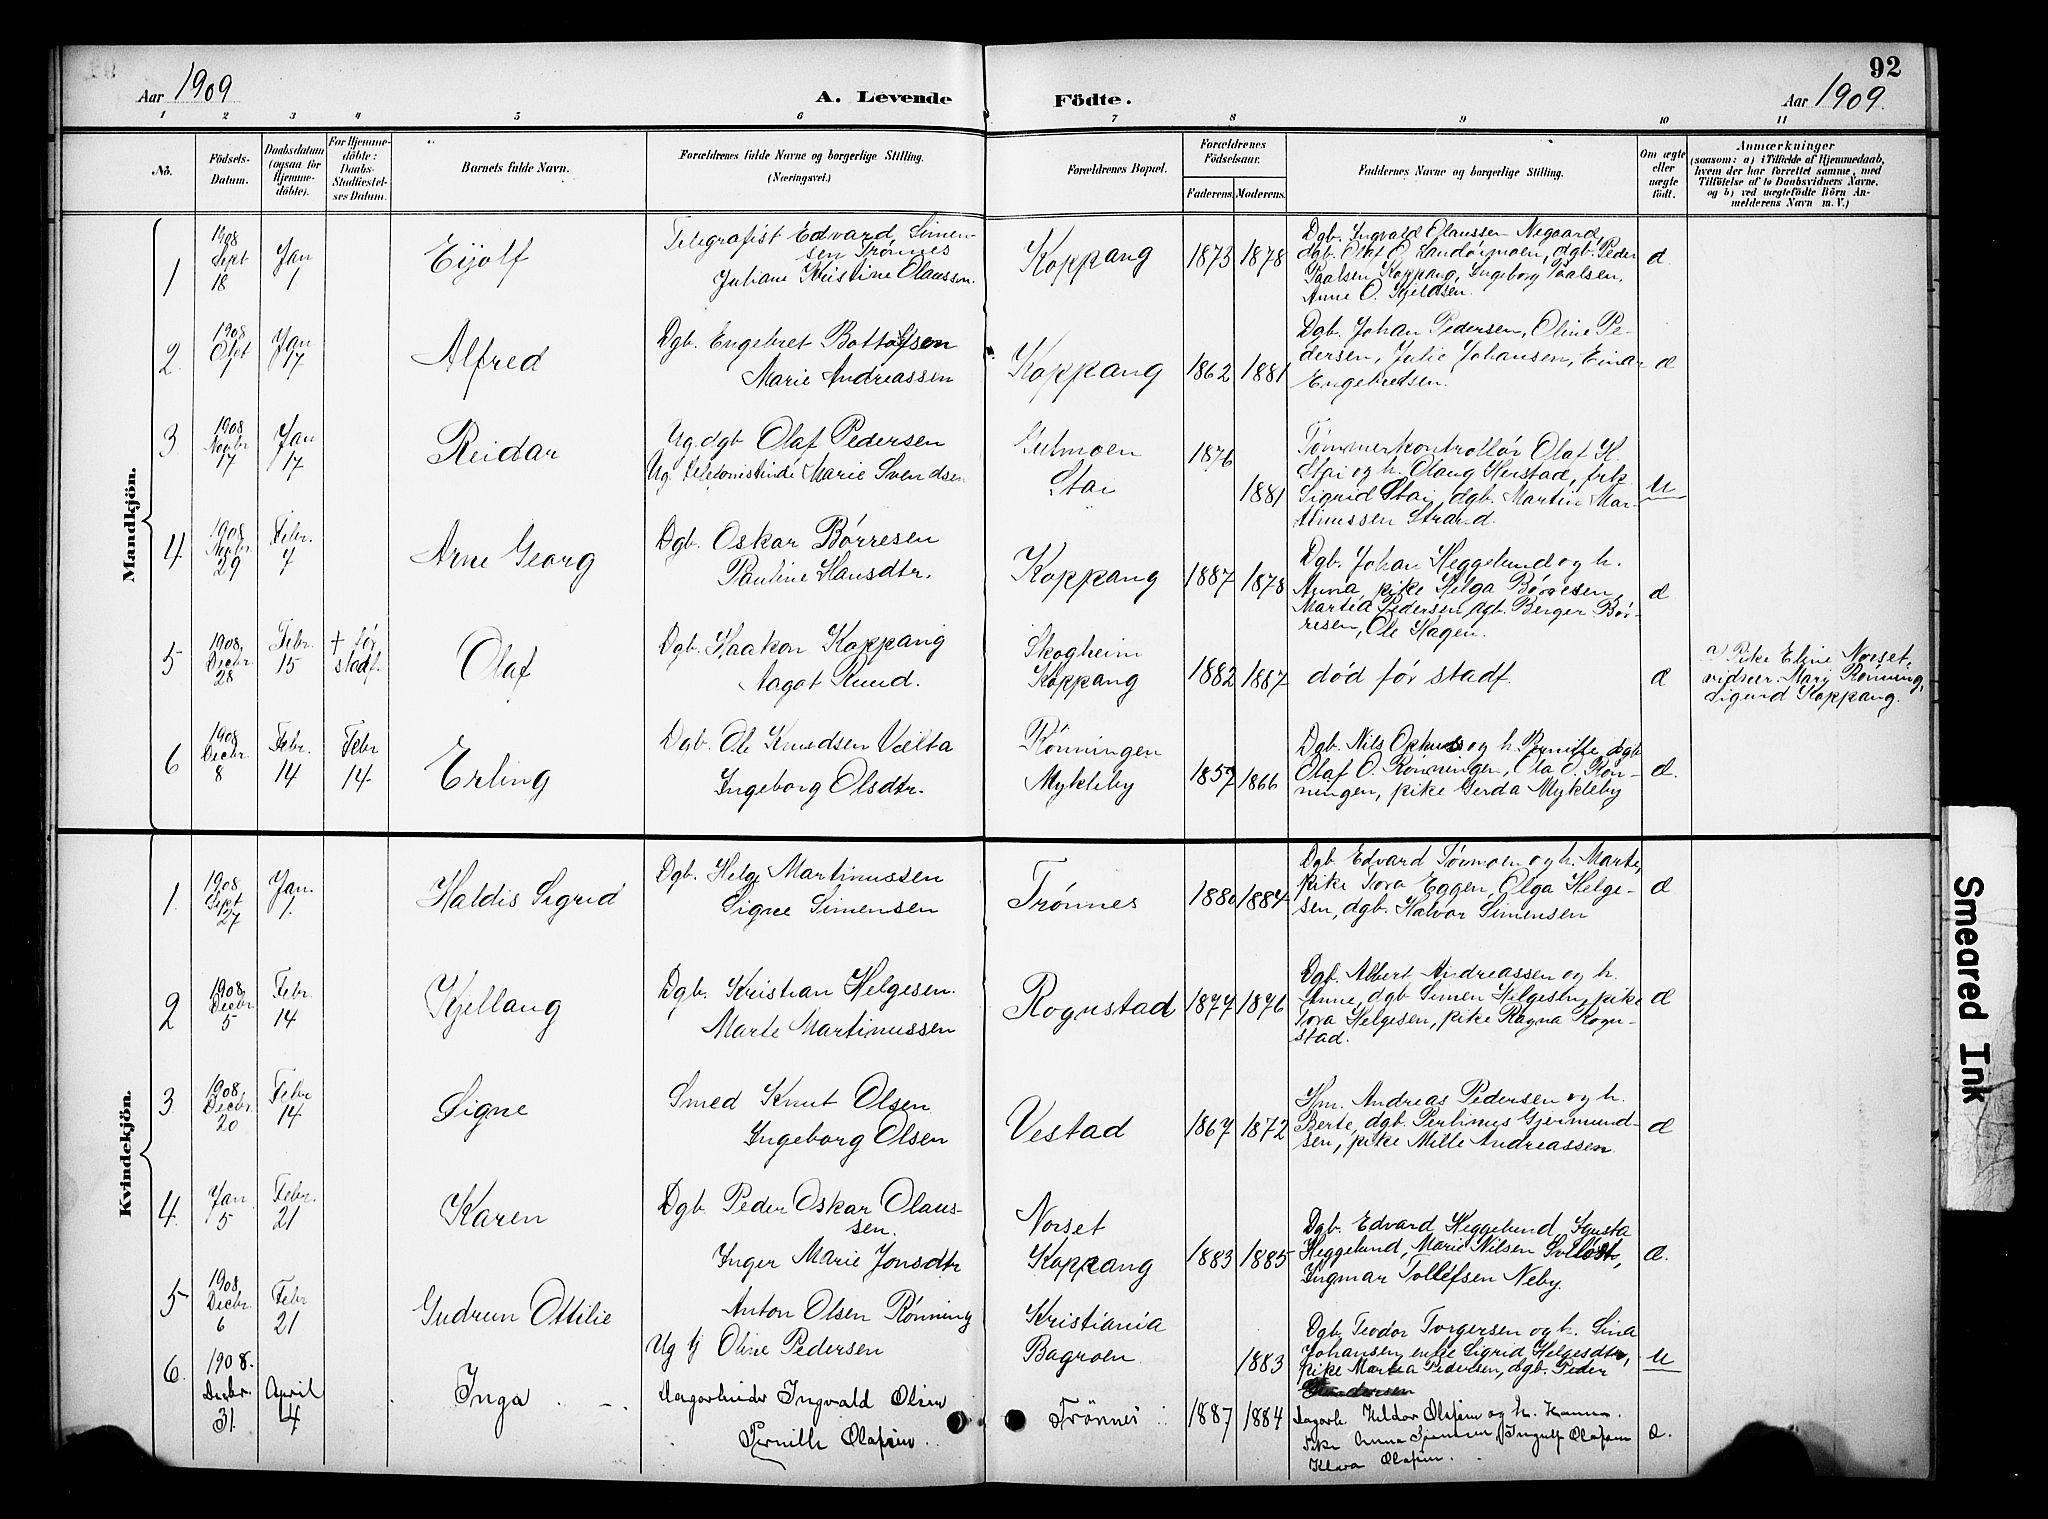 92
Aar 1909
A. Levende Födte.
Aar 1909.
1 2 3 4 5 6 7 8 9 10 11
No.
Födsels-
Datum.
Daabsdatum
(ogsaa for
Hjemme-
döbte).
For Hjemme-
döbte:
Daabs-
Stadfæstel-
ses Datum.
Barnets fulde Navn.
Forældrenes fulde Navne og borgerlige Stilling.
(Næringsvei.)
Forældrenes Bopæl.
Forældrenes
Födselsaar.
Faderens. Moderens.
Faddernes Navne og borgerlige Stilling.
Om ægte
eller
uægte
födt.
Anmærkninger
(saasom: a) i Tilfælde af Hjemmedaab,
hvem der har forrettet samme, med
Tilföielse af to Daabsvidners Navne,
og b) ved uægtefödte Börn An-
melderens Navn m. V.)
Mandkjön.
1
1908
Sept
18
Jan
1
Eijolf
Telegrafist Edvard Simen-
sen Trønnes
Juliane Kristine Olaussen.
Koppang
1873 1878
Dgb. Ingvald Olaussen Negaard,
dgb. Olaf O. Sandørmoen, dgb. Peder
Paalsen Koppang, Ingeborg Paalsen,
Anne O. Kjeldsen.
d
2.
1908
Olbt
7
Jan
17
Alfred
Dgb. Engebret Bottolfsen
Marie Andreassen
Koppang
1862 1881
Dgb. Johan Pedersen, Oline Pe-
dersen, Julie Johansen, Einar
Engebretsen.
d
3
1908
Novbr
17
Jan
17
Reidar
Ug. dgb Olaf Pedersen
Ug. telefonistinde Marie Svendsen
Stai
1876
1881
Tømmerkontrollør Olaf H.
Stai og h. Olaug Herstad, frk
Sigrid Stai, dgb. Martin Mar-
tinussen Strand.
U
4
1908
Novbr.
29
Febr.
7
Arne Georg
Dgb. Oskar Børresen
Pauline Hansdtr.
Koppang
1887 1878
Dgb. Johan Heggelund og h.
Anna, pike Helga Børresen,
Martea Pedersen, dgb. Berger Bør-
resen, Ole Hagen.
d
5
1908
Decbr.
28
Febr.
15
† før
stadf.
Olaf
Dgb. Haakon Koppang
Aagot Ruud.
Skogheim
Koppang
1882 1887
død før stadf.
d
a) Pike Eline Norset,
vidner. Mary Rønning,
Sigurd Koppang.
6
1908
Decbr.
8
Febr.
14
Febr
14.
Erling
Dgb. Ole Knudsen Vælta
Ingeborg Olsdtr.
Rønningen
Mykleby
1857 1866
Dgb. Nils Ophus og h. Pernille, dgb
Olaf O. Rønningen, Ola O. Røn-
ningen, pike Gerda Mykleby
d.
Kvindekjön.
1.
1908
Sept
27
Jan.
1.
Haldis Sigrid
Dgb. Helge Martinussen
Signe Simensen
Trønnes
1880 1884
Dgb Edvard Tørmoen og h. Marte,
pike Tora Eggen, Olga Helge-
sen, dgb. Halvor Simensen
d
2
1908
Decbr.
5
Febr.
14
Kjellaug
Dgb. Kristian Helgesen.
Marte Martinussen
Rognstad
1877 1876
Dgb. Albert Andreassen og h.
Anne, dgb Simen Helgesen, pike
Tora Helgesen, pike Ragna Rogn-
stad.
d
3
1908
Decbr.
20
Febr
14
Signe
Smed Knut Olsen
Ingeborg Olsen
Vestad
1867 1872
Hm. Andreas Pedersen og h.
Berte, dgb. Perlinus Gjermund-
sen, pike Mille Andreassen.
d
4.
Jan.
5
Febr.
21
Karen
Dgb. Peder Oskar Olaus-
sen.
Inger Marie Jonsdtr
Norset
Koppang
1883 1885
Dgb. Edvard Heggelund, Agusta
Heggelund, Marie Nilsen
Ingmar Tollefsen Neby.
d.
5
1908
Decbr.
6
Febr
21
Gudrun Ottilie
Anton Olsen Rønning
Ug tj Oline Pedersen
Kristiania
Bagroen
1883
Dgb. Teodor Torgersen og h. Sina
Johansen, enke Sigrid Helgesdtr,
pike Martea Pedersen, dgb. Peder
U
6.
1908.
Decbr.
31.
April
4
Inga
Dagarbeider Ingvald Olsen
Pernille Olafsen
Trønnes
1887 1884
Dagarb. Haldor Olafsen og h. Hanna.
Pike Anna Ingulf Olafsen
Klara Olafsen.
d.
Smeared Ink